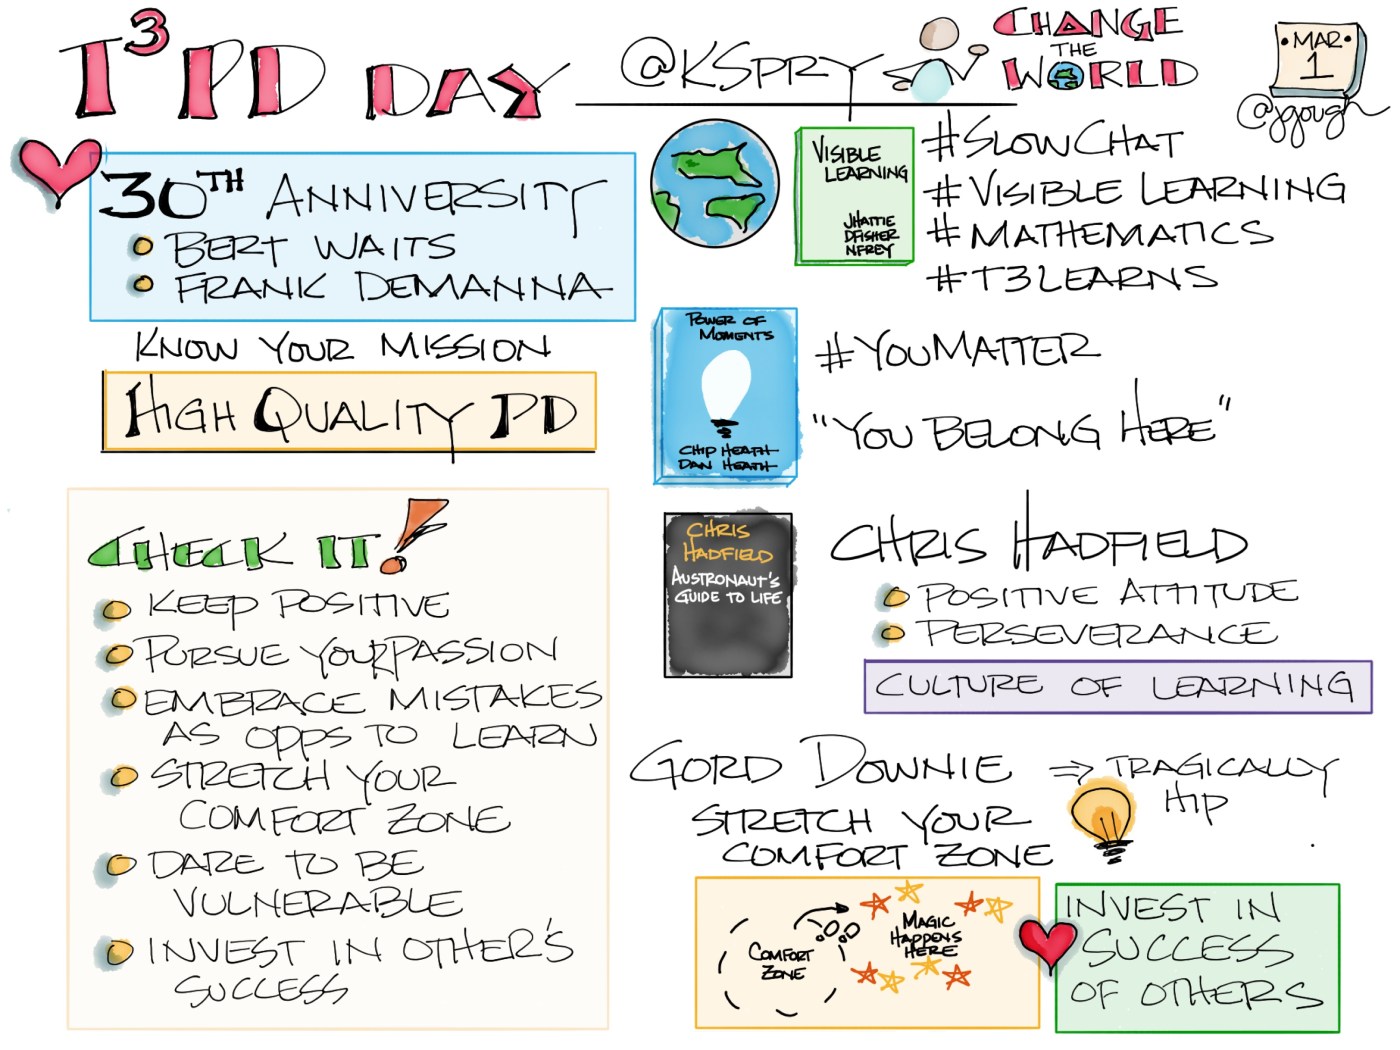 T³ PD DAY
@KSPRY
CHANGE
THE
WORLD
MAR
1
@jgough
30TH ANNIVERSITY
BERT WAITS
FRANK DEMANNA
KNOW YOUR MISSION
HIGH QUALITY PD
CHECK IT!
KEEP POSITIVE
PURSUE YOUR PASSION
EMBRACE MISTAKES
AS OPPS TO LEARN
STRETCH YOUR
COMFORT ZONE
DARE TO BE
VULNERABLE
INVEST IN OTHER'S
SUCCESS
VISIBLE
LEARNING
JHATTIE
DFISHER
NFREY
#SLOWCHAT
#VISIBLE LEARNING
#MATHEMATICS
#T3LEARNS
POWER OF
MOMENTS
CHIP HEATH
DAN HEATH
#YOUMATTER
"YOU BELONG HERE"
CHRIS
HADFIELD
AUSTRONAUT'S
GUIDE TO LIFE
CHRIS HADFIELD
POSITIVE ATTITUDE
PERSEVERANCE
CULTURE OF LEARNING
GORD DOWNIE ⇒ TRAGICALLY
HIP
STRETCH YOUR
COMFORT ZONE
COMFORT
ZONE
MAGIC
HAPPENS
HERE
INVEST IN
SUCCESS
OF OTHERS